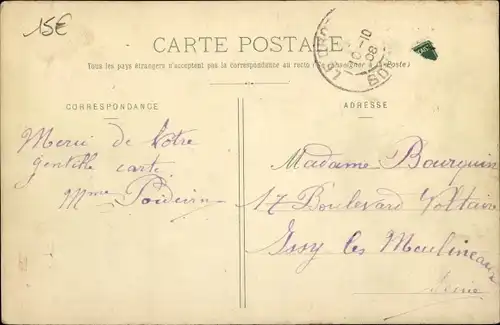 15€
CARTE POSTALE
Tous les pays étrangers n'acceptent pas la correspondance au recto (Se renseigner à la Poste)
CORRESPONDANCE
ADRESSE
Merci de Votre
gentille carte.
Mme Poidevin
Madame Bourquin
17 Boulevard Voltaire
Issy les Moulineaux
Seine